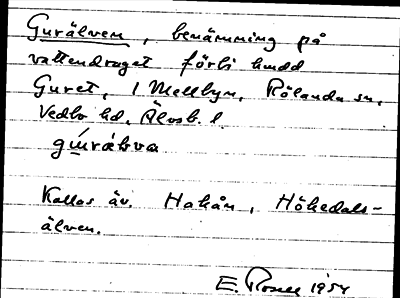 Gurälven, benämning på
vattendraget förbi hmdd
Guret, i Mellbyn, Rölanda sn,
Vedbo hd. Älvsb. l.
gu̇rȧlva
Kallas äv. Hakån, Hökedals-
älven.
E. Rosell 1954